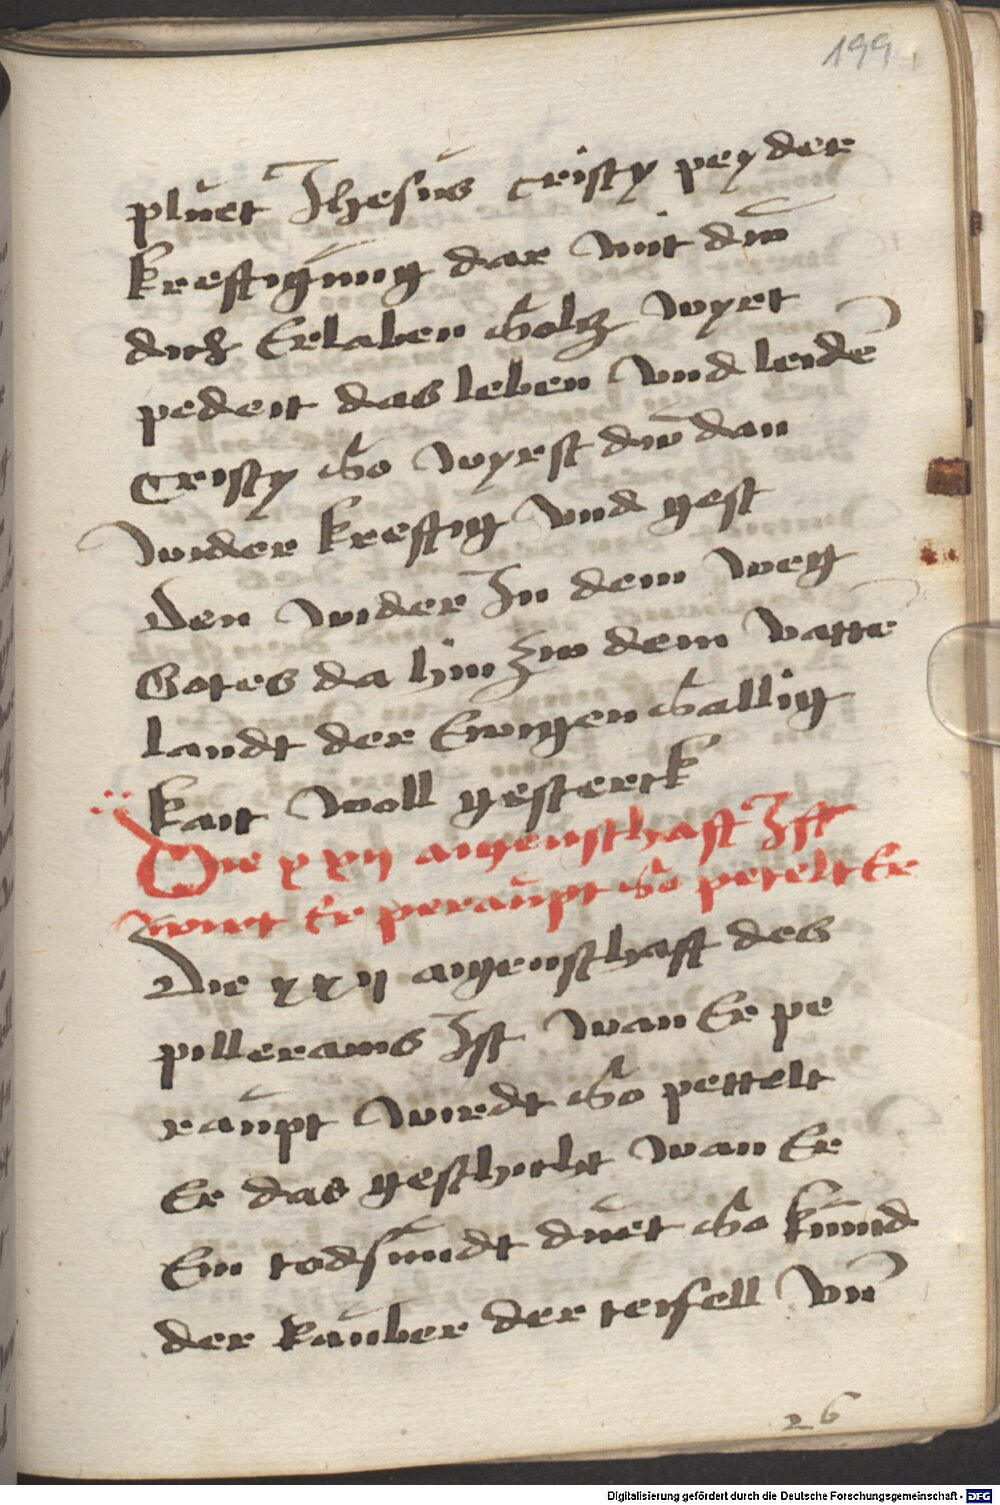 199
pluet Jhesus cristy pey der
kreftigung dar mit duͦ
dich Erlaben Solcz wyrt
pedeit das leben Vnd leidē
Cristy So wyrst duͦ dan
wider kreftig Vnd gest
Den wider Jn dem weg
Gotes da hin zuo dem Vatte
landt der Ewigen Sallig
kait woll gesterck
Die xxij aigenschaft Jst
wirt Er peraupt So petelt Er
Die xxij aigenschaft des
pillerams Jst wan Er pe
raupt wirdt So pettelt
Er das geschicht wan Er
Ein todsundt duet So kumd
der Rauber der teifell Vn̄
26
Digitalisierung gefördert durch die Deutsche Forschungsgemeinschaft - DFG